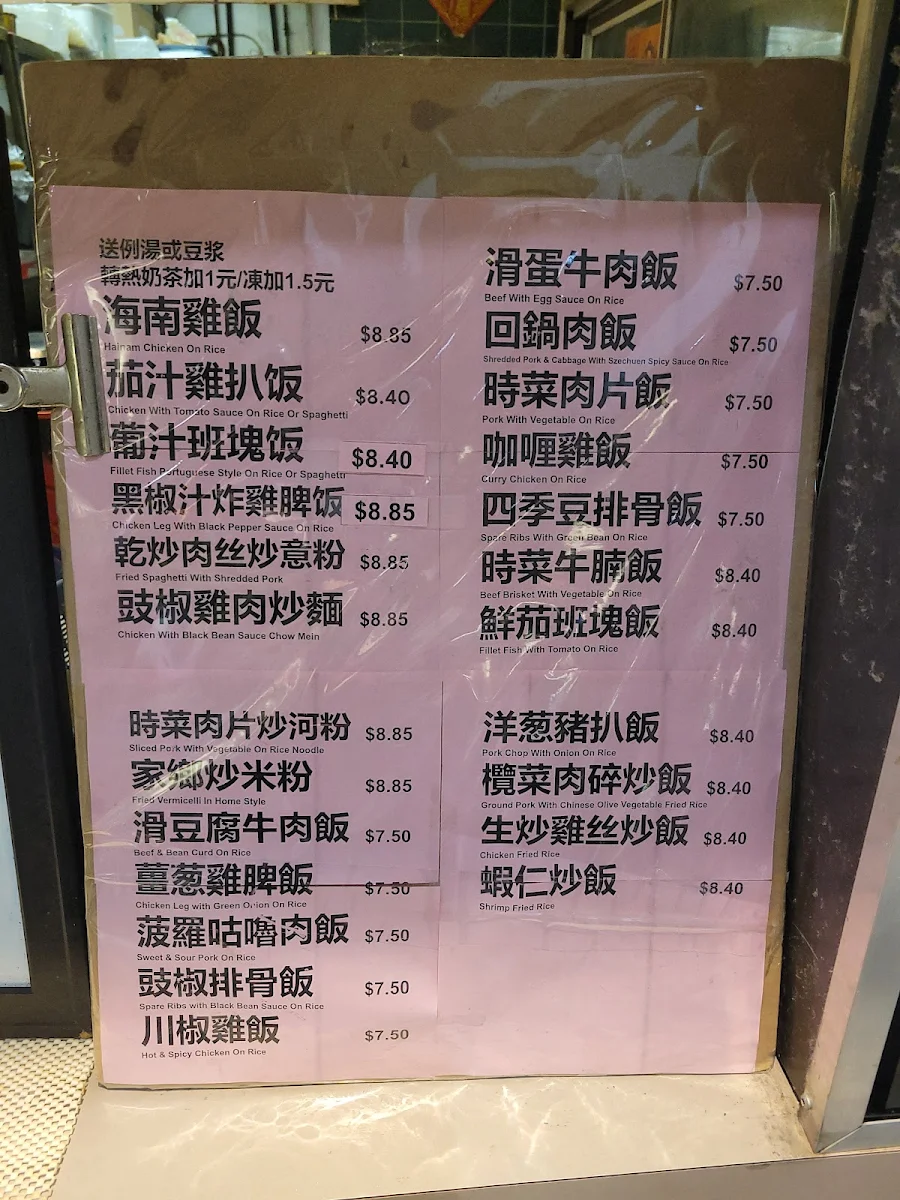 送例湯或豆浆
轉熱奶茶加1元/凍加1.5元
海南雞飯 $8.85
Hainam Chicken On Rice
茄汁雞扒饭 $8.40
Chicken With Tomato Sauce On Rice Or Spaghetti
葡汁班塊饭 $8.40
Fillet Fish Portuguese Style On Rice Or Spaghetti
黑椒汁炸雞脾饭 $8.85
Chicken Leg With Black Pepper Sauce On Rice
乾炒肉丝炒意粉 $8.85
Fried Spaghetti With Shredded Pork
豉椒雞肉炒麵 $8.85
Chicken With Black Bean Sauce Chow Mein
時菜肉片炒河粉 $8.85
Sliced Pork With Vegetable On Rice Noodle
家鄉炒米粉 $8.85
Fried Vermicelli In Home Style
滑豆腐牛肉飯 $7.50
Beef & Bean Curd On Rice
薑葱雞脾飯 $7.50
Chicken Leg with Green Onion On Rice
菠羅咕嚕肉飯 $7.50
Sweet & Sour Pork On Rice
豉椒排骨飯 $7.50
Spare Ribs with Black Bean Sauce On Rice
川椒雞飯 $7.50
Hot & Spicy Chicken On Rice
滑蛋牛肉飯 $7.50
Beef With Egg Sauce On Rice
回鍋肉飯 $7.50
Shredded Pork & Cabbage With Szechuen Spicy Sauce On Rice
時菜肉片飯 $7.50
Pork With Vegetable On Rice
咖喱雞飯 $7.50
Curry Chicken On Rice
四季豆排骨飯 $7.50
Spare Ribs With Green Bean On Rice
時菜牛腩飯 $8.40
Beef Brisket With Vegetable On Rice
鮮茄班塊飯 $8.40
Fillet Fish With Tomato On Rice
洋葱豬扒飯 $8.40
Pork Chop With Onion On Rice
欖菜肉碎炒飯 $8.40
Ground Pork With Chinese Olive Vegetable Fried Rice
生炒雞丝炒飯 $8.40
Chicken Fried Rice
蝦仁炒飯 $8.40
Shrimp Fried Rice